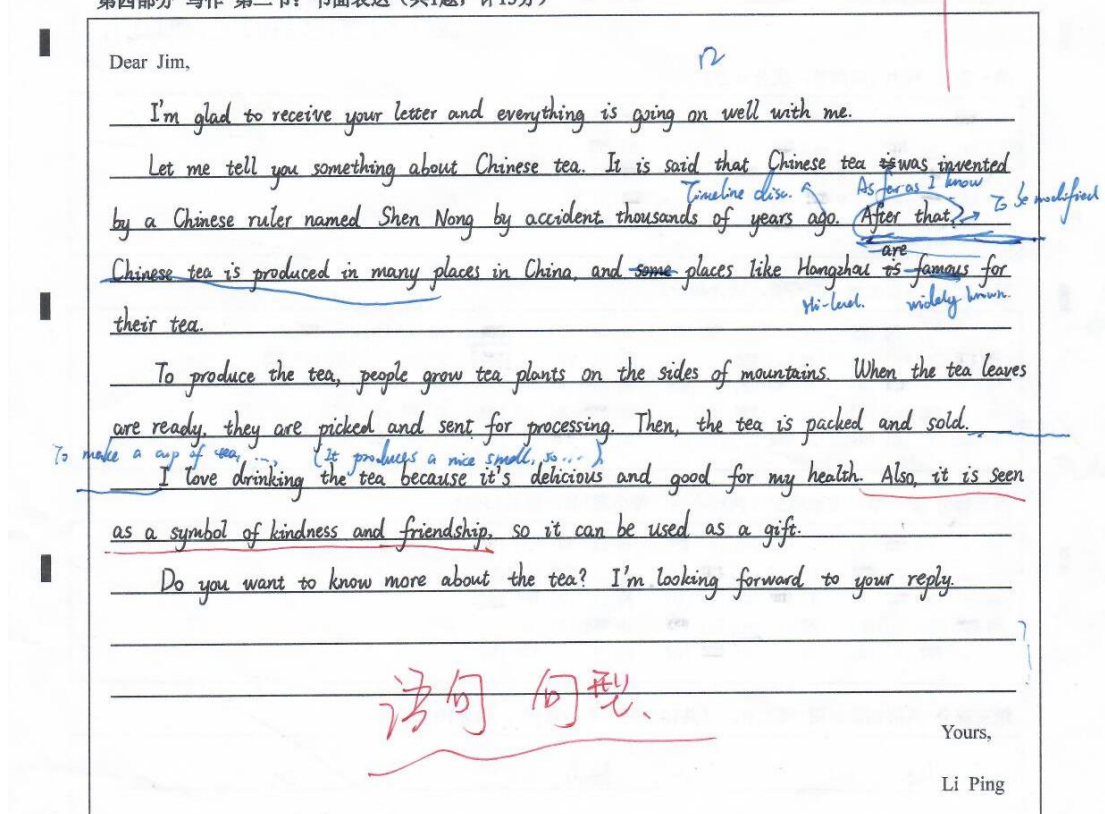 第四部分 写作 第二节：书面表达（共1题，计15分）
12
Dear Jim,
I'm glad to receive your letter and everything is going on well with me.
Let me tell you something about Chinese tea. It is said that Chinese tea is was invented
Timeline disc. As far as I know To be modified
by a Chinese ruler named Shen Nong by accident thousands of years ago. After that,
are
Chinese tea is produced in many places in China, and some places like Hangzhou is famous for
Hi-level. widely known.
their tea.
To produce the tea, people grow tea plants on the sides of mountains. When the tea leaves
are ready, they are picked and sent for processing. Then, the tea is packed and sold.
To make a cup of tea, ..., (It produces a nice smell, so...)
I love drinking the tea because it's delicious and good for my health. Also, it is seen
as a symbol of kindness and friendship, so it can be used as a gift.
Do you want to know more about the tea? I'm looking forward to your reply.
语句 句型、
Yours,
Li Ping